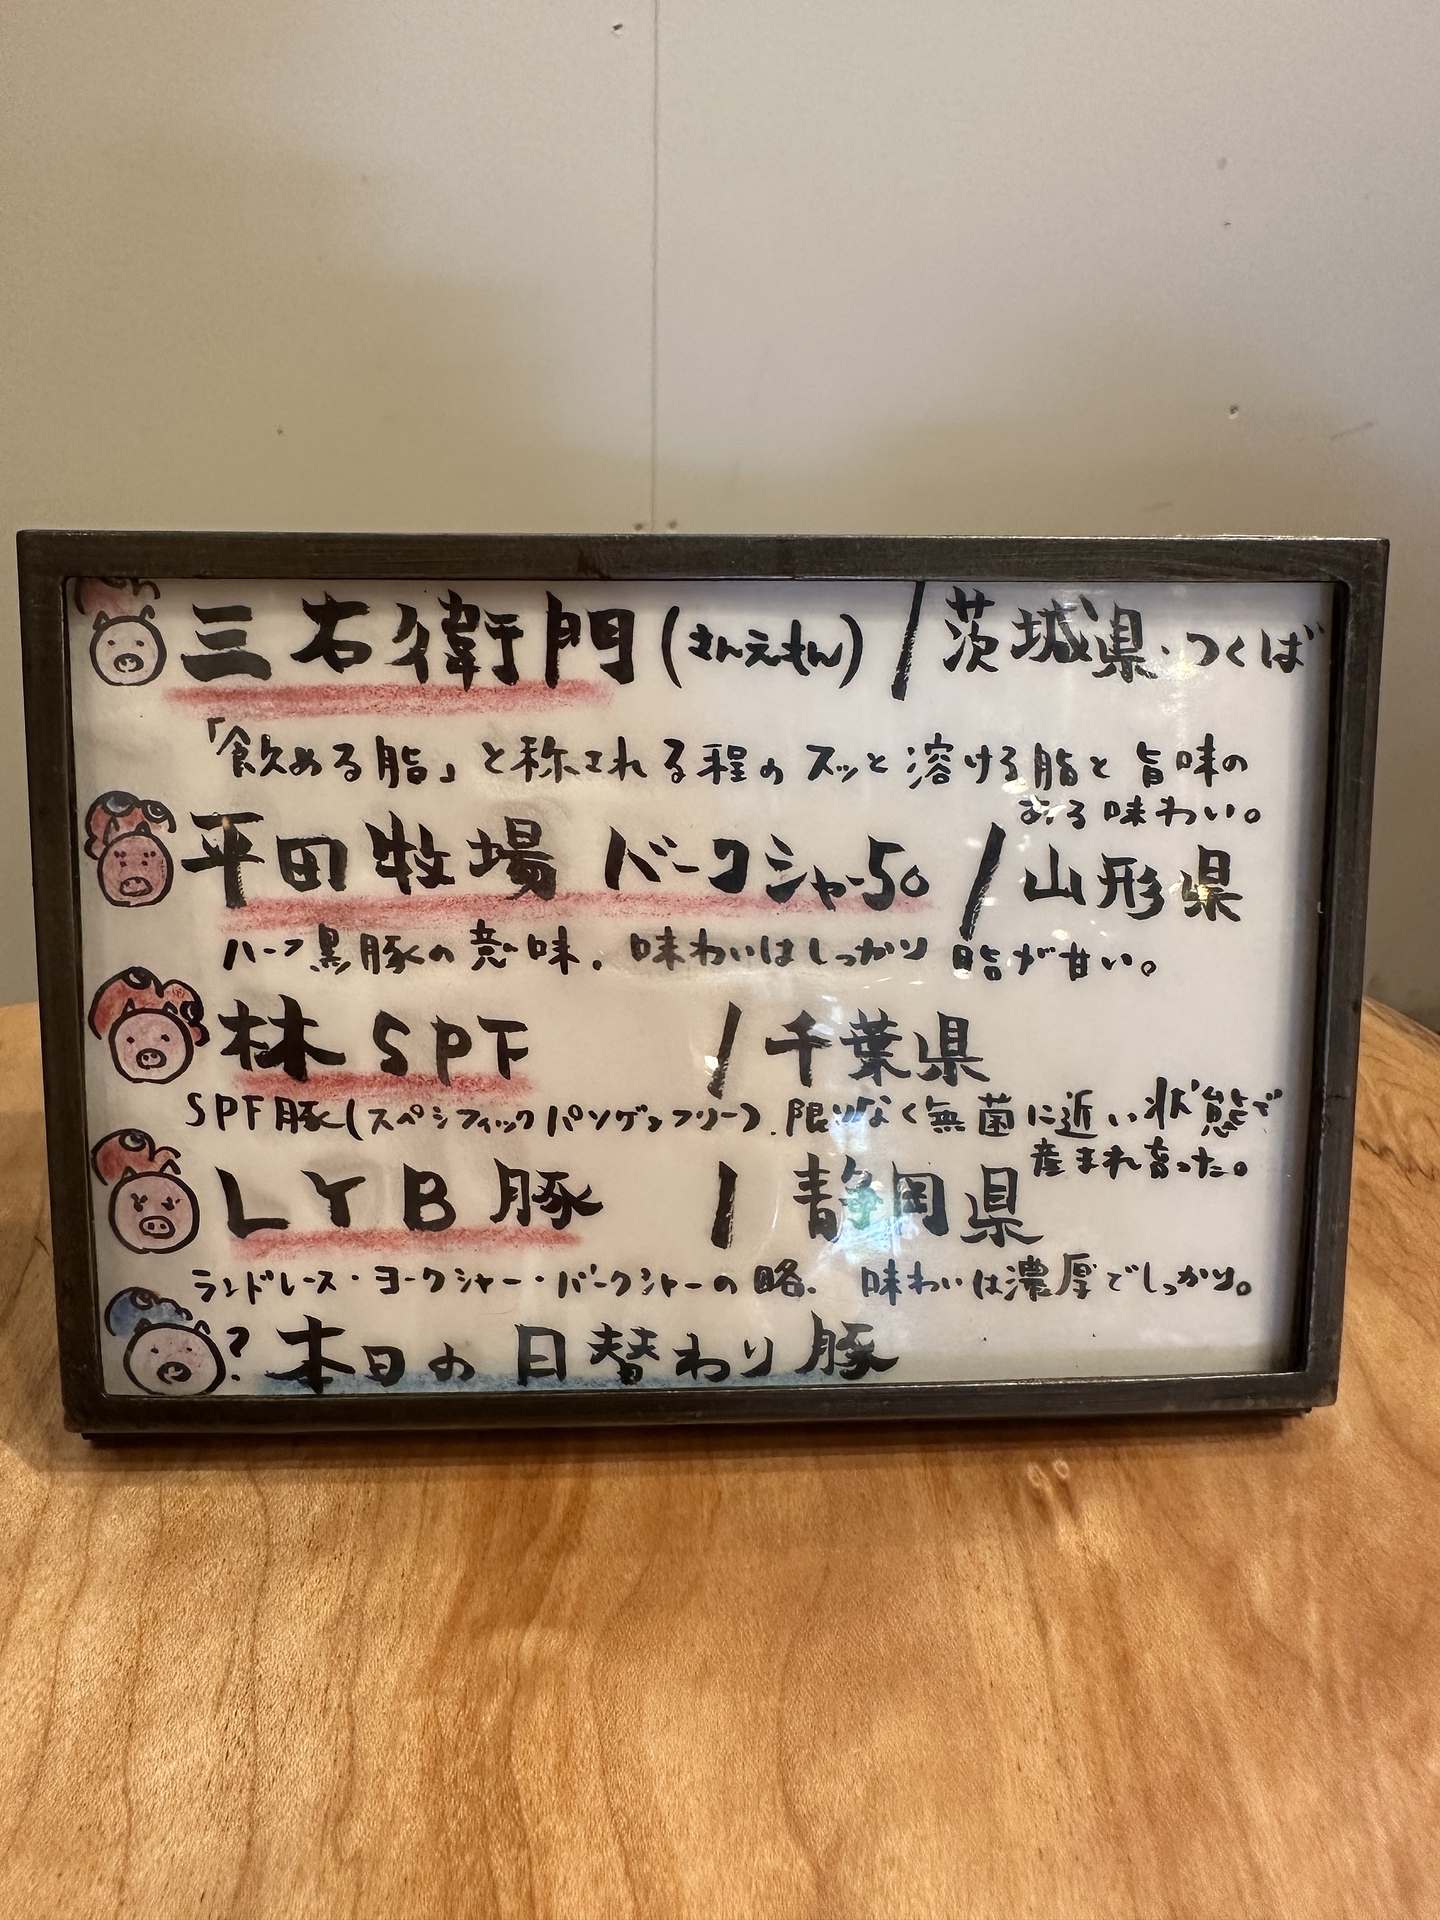 三右衛門(さんえもん) / 茨城県・つくば
「飲める脂」と称される程のスッと溶ける脂と旨味の
ある味わい。
平田牧場 バークシャー50 / 山形県
ハーフ黒豚の意味。味わいはしっかり 脂が甘い。
林SPF / 千葉県
SPF豚(スペシフィックパソゲンフリー)。限りなく無菌に近い状態で
産まれ育った。
LYB豚 / 静岡県
ランドレース・ヨークシャー・バークシャーの略。味わいは濃厚でしっかり。
? 本日の日替わり豚